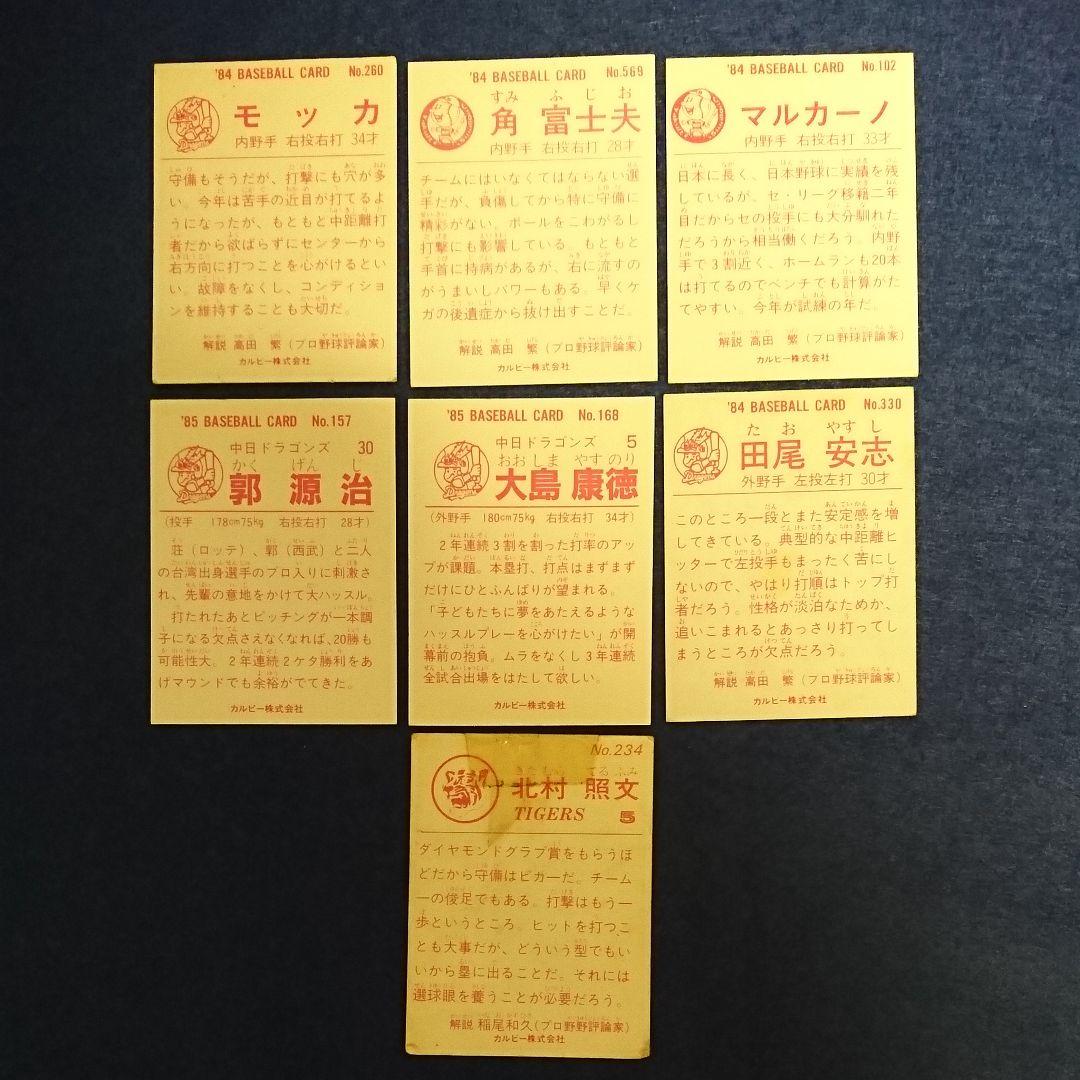 '84 BASEBALL CARD No.260
モッカ
内野手 右投右打 34才
守備もそうだが、打撃にも穴が多
い。今年は苦手の近目が打てるよ
うになったが、もともと中距離打
者だから欲ばらずにセンターから
右方向に打つことを心がけるとい
い。故障をなくし、コンディショ
ンを維持することも大切だ。
解説 高田 繁(プロ野球評論家)
カルビー株式会社
'84 BASEBALL CARD No.569
すみ ふじお
角 富士夫
内野手 右投右打 28才
チームにはいなくてはならない選
手だが、負傷してから特に守備に
精彩がない。ボールをこわがるし
打撃にも影響している。もともと
手首に持病があるが、右に流すの
がうまいしパワーもある。早くケ
ガの後遺症から抜け出すことだ。
解説 高田 繁(プロ野球評論家)
カルビー株式会社
'84 BASEBALL CARD No.102
マルカーノ
内野手 右投右打 33才
日本に長く、日本野球に実績を残
しているが、セ・リーグ移籍二年
目だからセの投手にも大分馴れた
だろうから相当働くだろう。内野
手で3割近く、ホームランも20本
は打てるのでベンチでも計算がた
てやすい。今年が試練の年だ。
解説 高田 繁(プロ野球評論家)
カルビー株式会社
'85 BASEBALL CARD No.157
中日ドラゴンズ 30
かく げんじ
郭 源治
(投手 178cm75kg 右投右打 28才)
荘(ロッテ)、郭(西武)と二人
の台湾出身選手のプロ入りに刺激さ
れ、先輩の意地をかけて大ハッスル。
打たれたあとピッチングが一本調
子になる欠点さえなくなれば、20勝も
可能性大。2年連続2ケタ勝利をあ
げマウンドでも余裕がでてきた。
カルビー株式会社
'85 BASEBALL CARD No.168
中日ドラゴンズ 5
おおしま やすのり
大島 康徳
(外野手 180cm75kg 右投右打 34才)
2年連続3割を割った打率のアッ
プが課題。本塁打、打点はまずまず
だけにひとふんばりが望まれる。
「子どもたちに夢をあたえるような
ハッスルプレーを心がけたい」が開
幕前の抱負。ムラをなくし3年連続
全試合出場をはたして欲しい。
カルビー株式会社
'84 BASEBALL CARD No.330
たお やすし
田尾 安志
外野手 左投左打 30才
このところ一段とまた安定感を増
してきている。典型的な中距離ヒ
ッターで左投手もまったく苦にし
ないので、やはり打順はトップ打
者だろう。性格が淡泊なためか、
追いこまれるとあっさり打ってし
まうところが欠点だろう。
解説 高田 繁(プロ野球評論家)
カルビー株式会社
No.234
てるふみ
北村 照文
TIGERS 5
ダイヤモンドグラブ賞をもらうほ
どだから守備はピカ一だ。チーム
一の俊足でもある。打撃はもう一
歩というところ。ヒットを打つこ
とも大事だが、どういう型でもい
いから塁に出ることだ。それには
選球眼を養うことが必要だろう。
解説 稲尾和久(プロ野野評論家)
カルビー株式会社